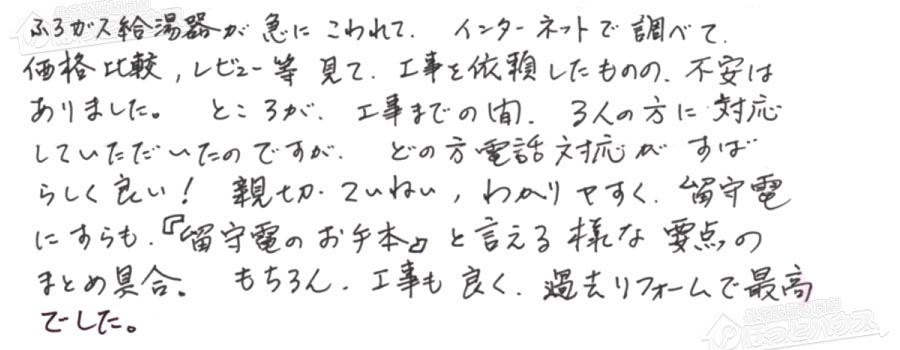 ふろガス給湯器が急にこわれて、インターネットで調べて、
価格比較,レビュー等見て、工事を依頼したものの、不安は
ありました。ところが、工事までの間、3人の方に対応
していただいたのですが、どの方電話対応がすば
らしく良い!親切・ていねい,わかりやすく、留守電
にすらも、『留守電のお手本』と言える様な要点の
まとめ具合。もちろん、工事も良く、過去リフォームで最高
でした。
ほっとハウス